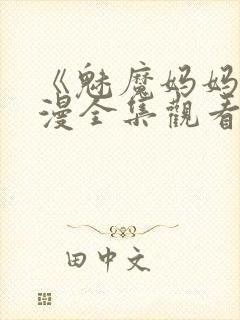 《魅魔妈妈
漫全集觀看
田中文